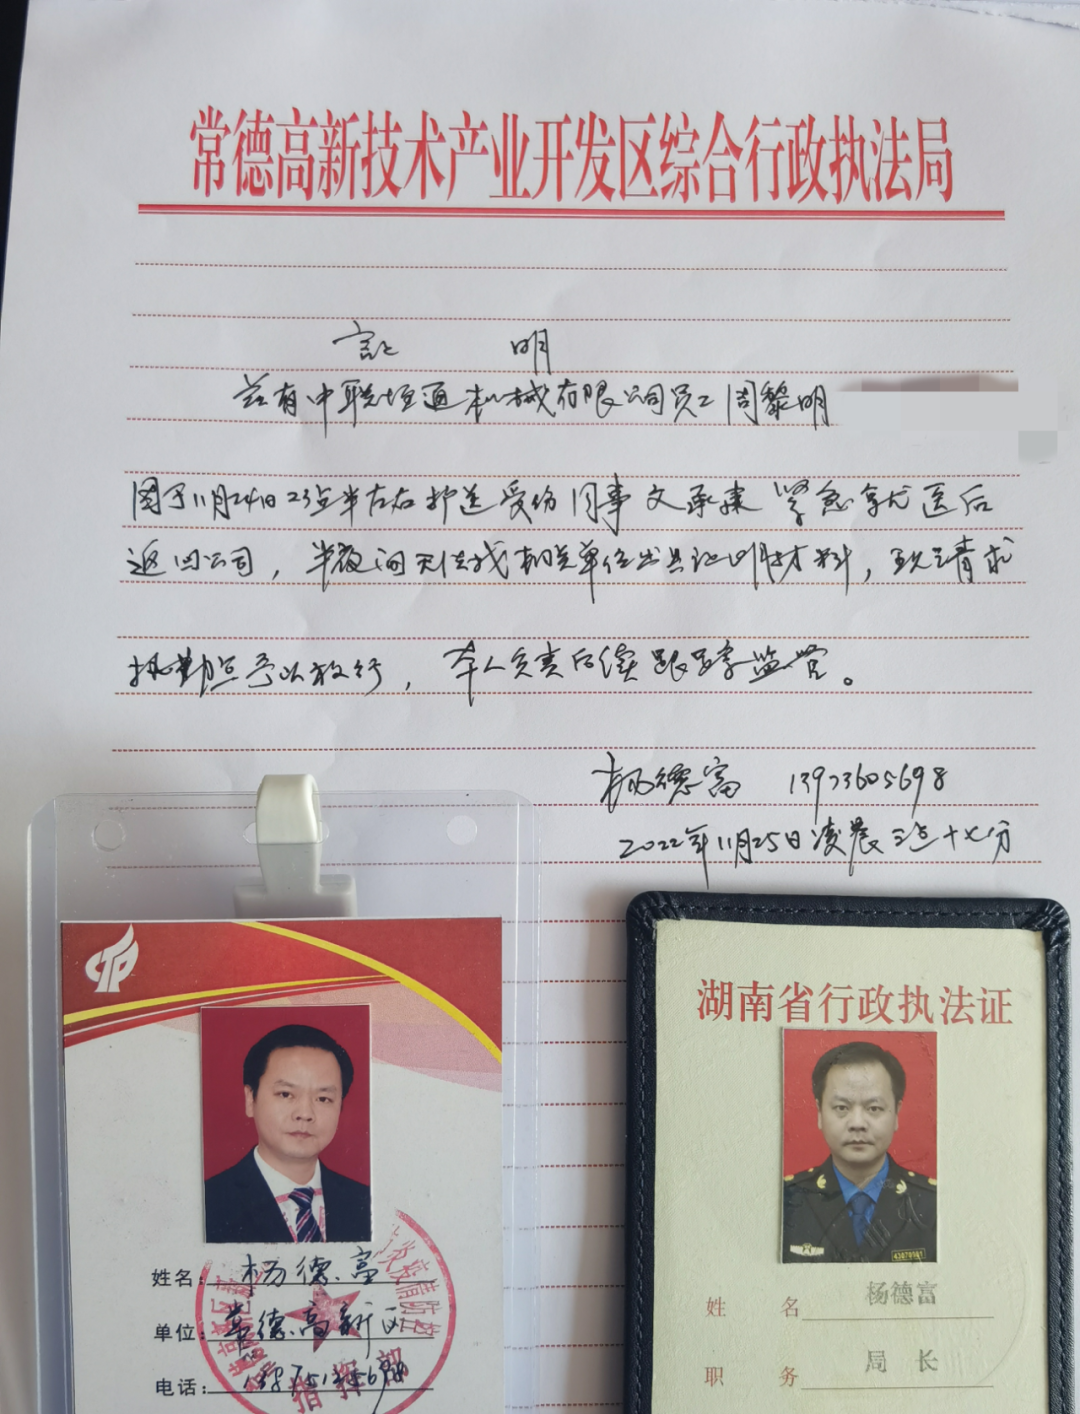 常德高新技术产业开发区综合行政执法局
证 明
兹有中联恒通机械有限公司员工周黎明
因于11月24日23点半左右护送受伤同事文承肃紧急就医后
返回公司，半夜间无法找相关单位出具证明材料，现请求
执勤点予以放行，本人负责后续跟踪监管。
杨德富 13973605698
2022年11月25日凌晨三点十七分
姓名：杨德富
单位：常德高新区
电话：
指挥部
湖南省行政执法证
姓 名 杨德富
职 务 局 长